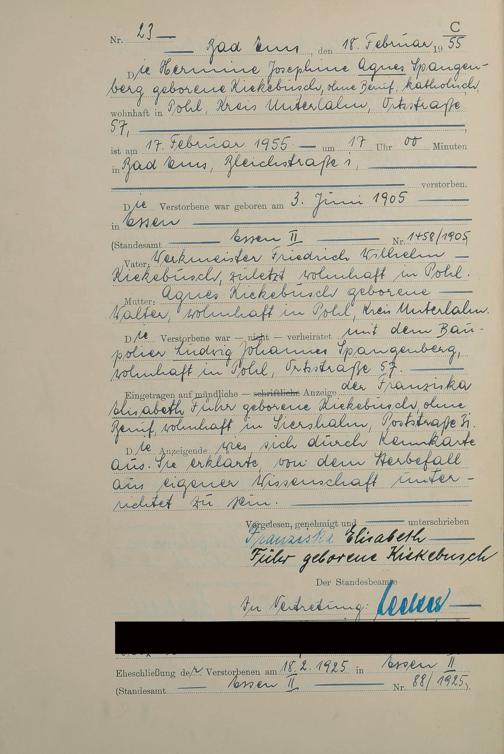 C
Nr. 23 —
Bad Ems, den 18. Februar 1955
Die Hermine Josephine Agnes Spangen-
berg geborene Kiekebusch, ohne Beruf, katholisch,
wohnhaft in Pohl, Kreis Unterlahn, Ortsstraße
57,
ist am 17. Februar 1955 — um 17 Uhr 00 Minuten
in Bad Ems, Bleichstraße 1,
verstorben.
Die Verstorbene war geboren am 3. Juni 1905
in Essen
(Standesamt Essen II Nr. 1458/1905)
Vater: Werkmeister Friedrich Wilhelm —
Kiekebusch, zuletzt wohnhaft in Pohl.
Mutter: Agnes Kiekebusch geborene —
Walter, wohnhaft in Pohl, Kreis Unterlahn.
Die Verstorbene war — nicht — verheiratet mit dem Bau-
polier Ludwig Johannes Spangenberg,
wohnhaft in Pohl, Ortsstraße 57.
Eingetragen auf mündliche — schriftliche Anzeige der Franziska
Elisabeth Führ geborene Kiekebusch, ohne
Beruf, wohnhaft in Giershahn, Poststraße 31.
Die Anzeigende wies sich durch Kennkarte
aus. Sie erklärte, von dem Sterbefall
aus eigener Wissenschaft unter-
richtet zu sein.
Vorgelesen, genehmigt und — unterschrieben
Franziska Elisabeth
Führ geborene Kiekebusch
Der Standesbeamte
In Vertretung:
Eheschließung der Verstorbenen am 18.2.1925 in Essen II
(Standesamt — Essen II — Nr. 88/1925).